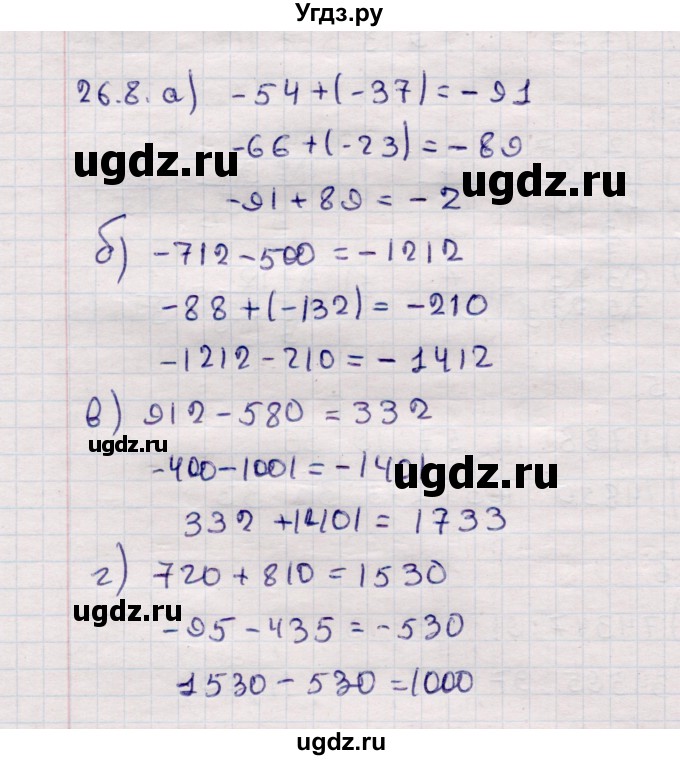 Угдз.ру
26.8. а) -54+(-37)=-91
ugdz.ru
-66+(-23)=-89
ugdz.ru
-91+89=-2
б) -712-500=-1212
-88+(-132)=-210
-1212-210=-1412
в) 912-580=332
ugdz.ru
-400-1001=-1401
ugdz.ru
332+1401=1733
г) 720+810=1530
ugdz.ru
-95-435=-530
1530-530=1000
ugdz.ru